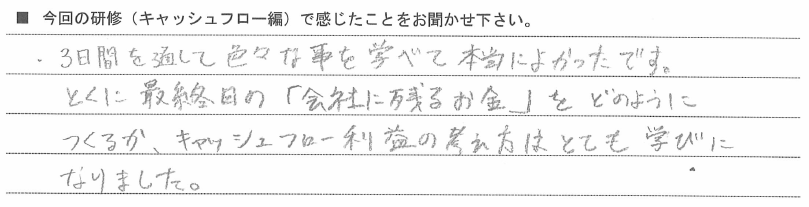 ■ 今回の研修（キャッシュフロー編）で感じたことをお聞かせ下さい。
・3日間を通して色々な事を学べて本当によかったです。
とくに最終日の「会社に残るお金」をどのように
つくるか、キャッシュフロー利益の考え方はとても学びに
なりました。